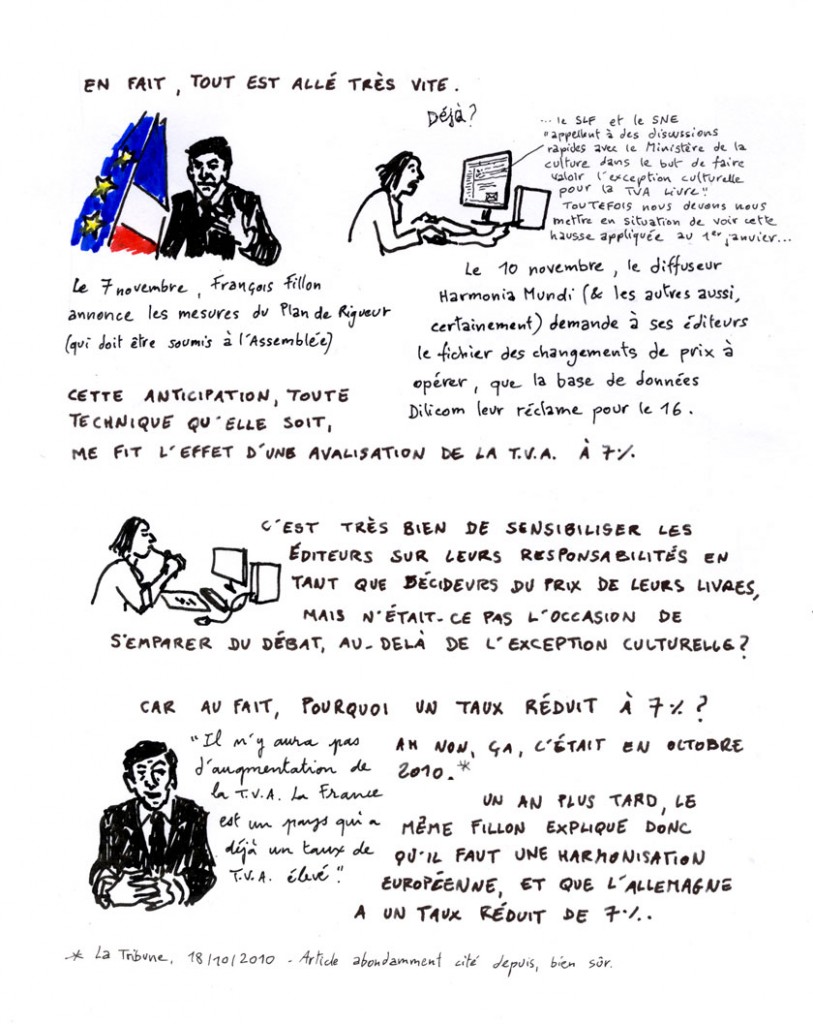 EN FAIT, TOUT EST ALLÉ TRÈS VITE.
Déjà?
... le SLF et le SNE
"appellent à des discussions
rapides avec le Ministère de la
culture dans le but de faire
valoir l'exception culturelle
pour la TVA Livre".
TOUTEFOIS nous devons nous
mettre en situation de voir cette
hausse appliquée au 1er janvier...
Le 7 novembre, François Fillon
annonce les mesures du Plan de Rigueur
(qui doit être soumis à l'Assemblée)
Le 10 novembre, le diffuseur
Harmonia Mundi (& les autres aussi,
certainement) demande à ses éditeurs
le fichier des changements de prix à
opérer, que la base de données
Dilicom leur réclame pour le 16.
CETTE ANTICIPATION, TOUTE
TECHNIQUE QU'ELLE SOIT,
ME FIT L'EFFET D'UNE AVALISATION DE LA T.V.A. À 7%
C'EST TRÈS BIEN DE SENSIBILISER LES
ÉDITEURS SUR LEURS RESPONSABILITÉS EN
TANT QUE DÉCIDEURS DU PRIX DE LEURS LIVRES,
MAIS N'ÉTAIT-CE PAS L'OCCASION DE
S'EMPARER DU DÉBAT, AU-DELÀ DE L'EXCEPTION CULTURELLE?
CAR AU FAIT, POURQUOI UN TAUX RÉDUIT À 7%?
"Il n'y aura pas
d'augmentation de
la T.V.A. La France
est un pays qui a
déjà un taux de
T.V.A. élevé".
AH NON, ÇA, C'ÉTAIT EN OCTOBRE
2010.*
UN AN PLUS TARD, LE
MÊME FILLON EXPLIQUE DONC
QU'IL FAUT UNE HARMONISATION
EUROPÉENNE, ET QUE L'ALLEMAGNE
A UN TAUX RÉDUIT DE 7%.
* La Tribune, 18/10/2010 - Article abondamment cité depuis, bien sûr.